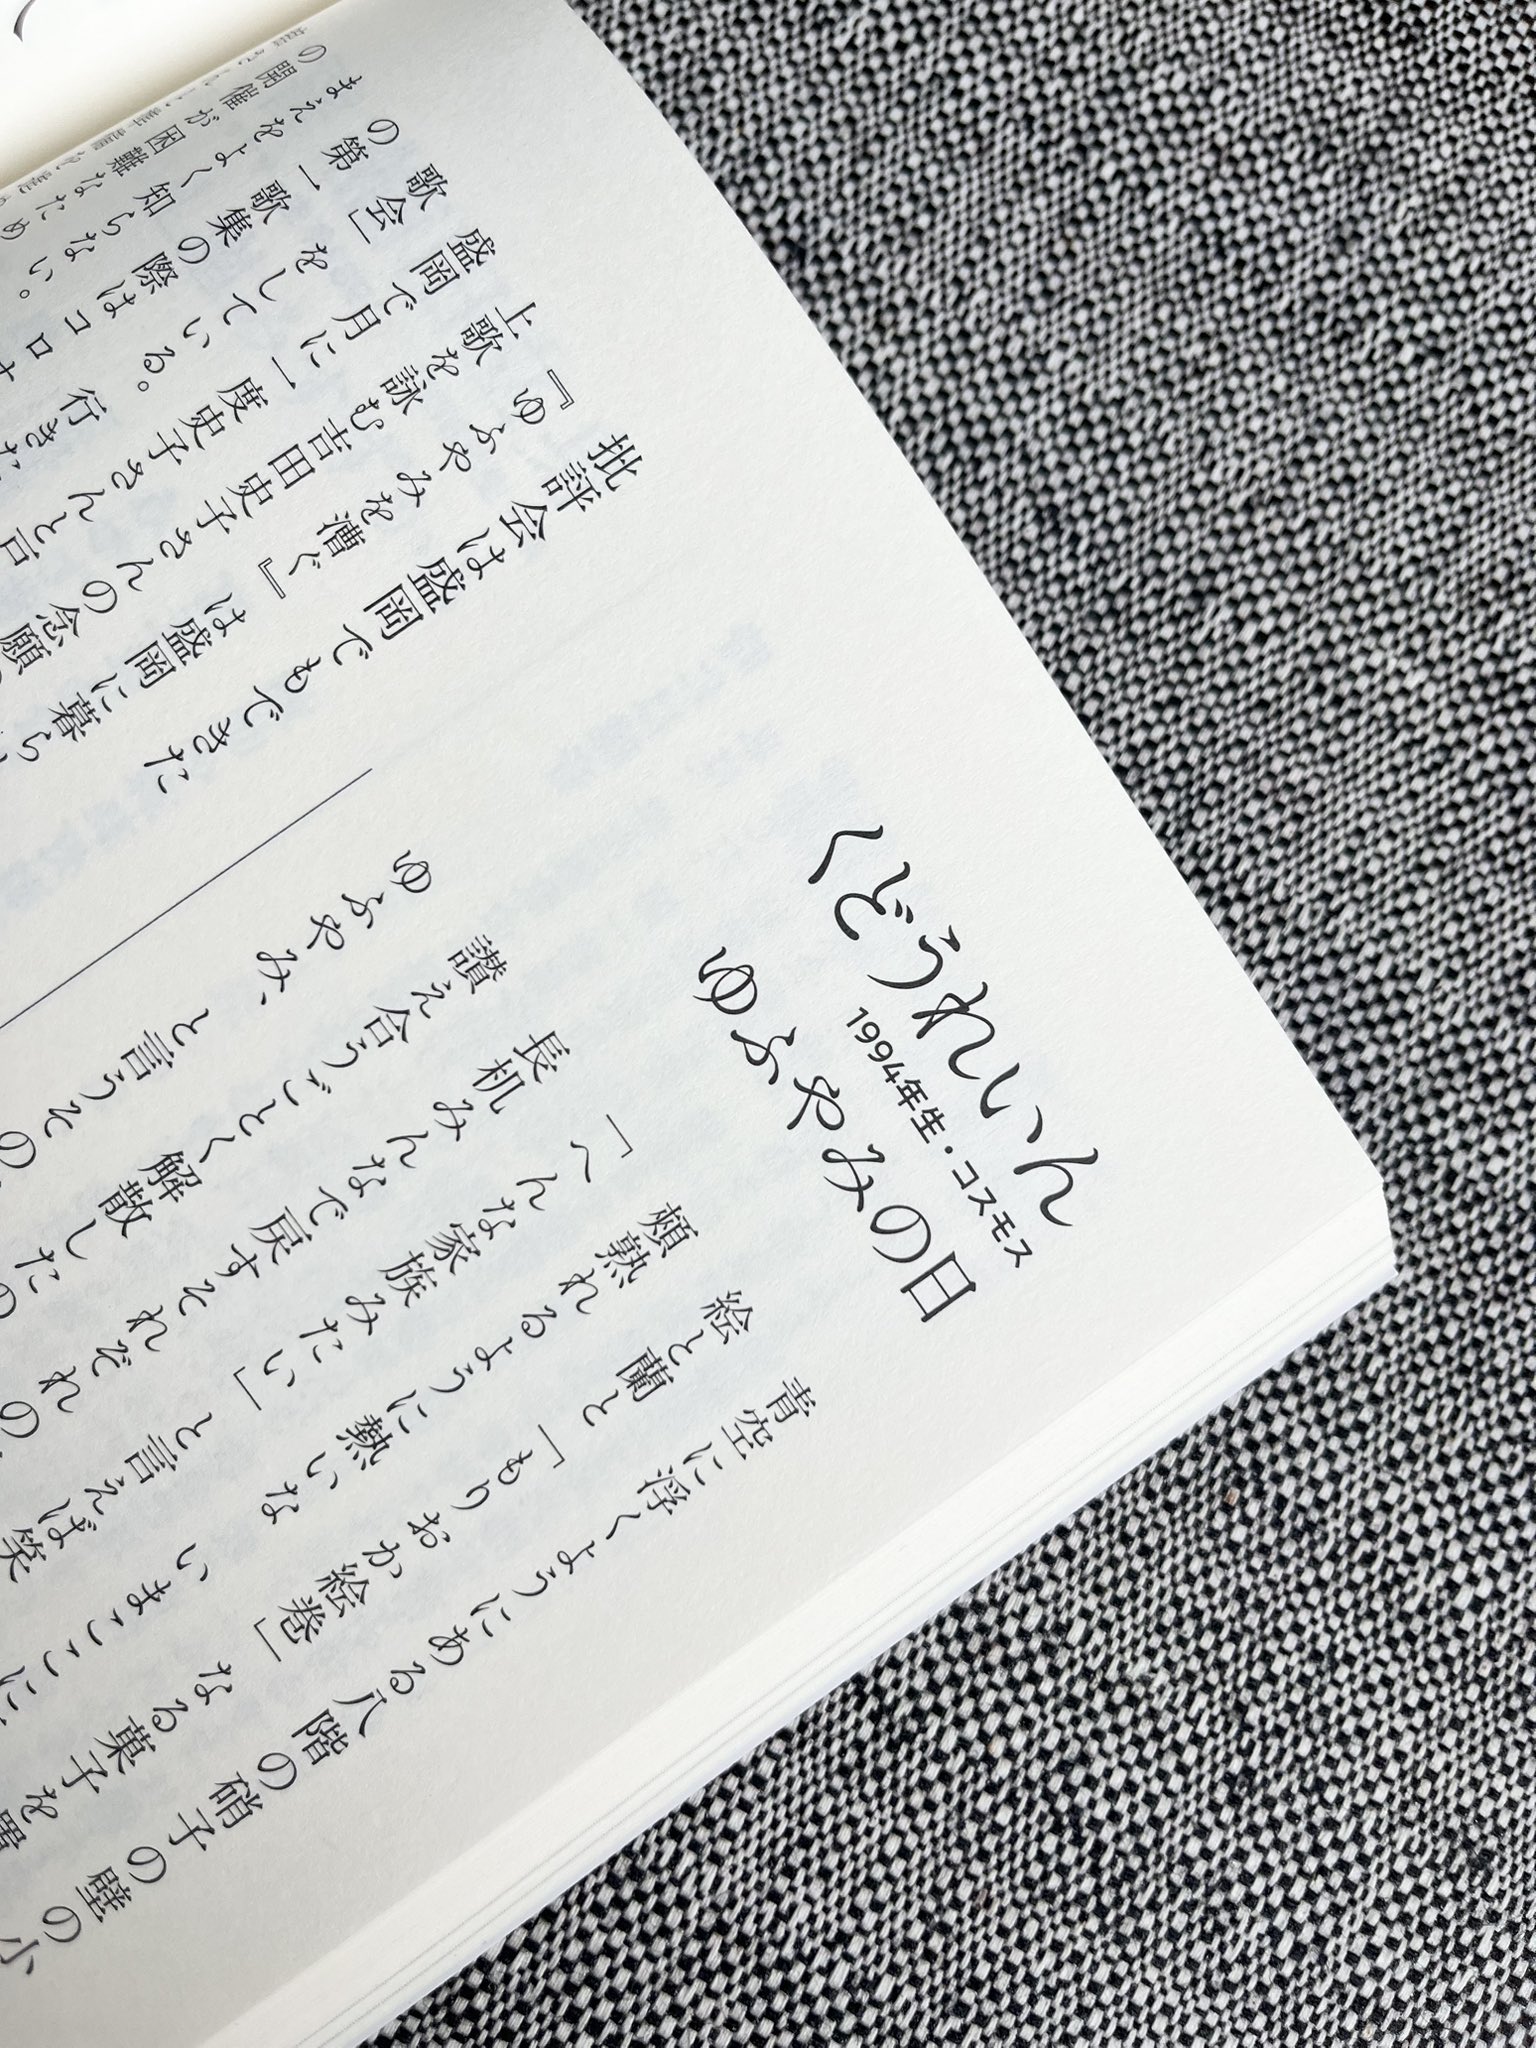 くどうれいん
1994年生・コスモス
ゆふやみの日
青空に浮くようにある八階の硝子の壁の小
絵と蘭と「もりおか絵巻」なる菓子を置
頬熟れるように熱いな いまここに
「へんな家族みたい」と言えば笑
長机みんなで戻すそれぞれの
讃え合うごとく解散したの
ゆふやみ、と言うその
批評会は盛岡でもできた
『ゆふやみを漕ぐ』は盛岡に暮ら
上歌を詠む吉田史子さんの念願の
盛岡で月に一度史子さんと戸
歌会」をしている。行きた
の第一歌集の際はコロナ
まえをよく知らない。
の開催が困難なため